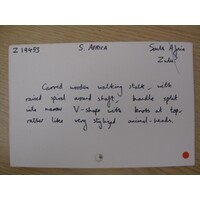 Z 19483 S. AFRICA South Africa
Zulu?
Carved wooden walking stick, with
raised spiral around shaft, handle split
into narrow V-shape with knots at top,
rather like very stylized animal-heads.